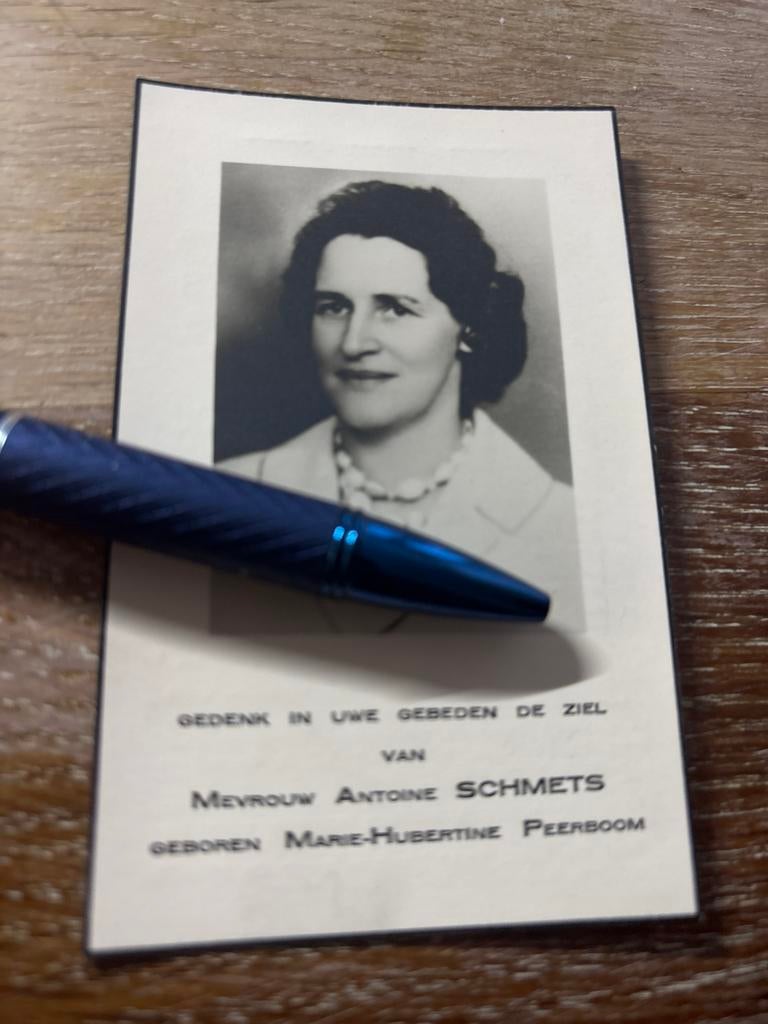 GEDENK IN UWE GEBEDEN DE ZIEL
VAN
MEVROUW ANTOINE SCHMETS
GEBOREN MARIE-HUBERTINE PEERBOOM